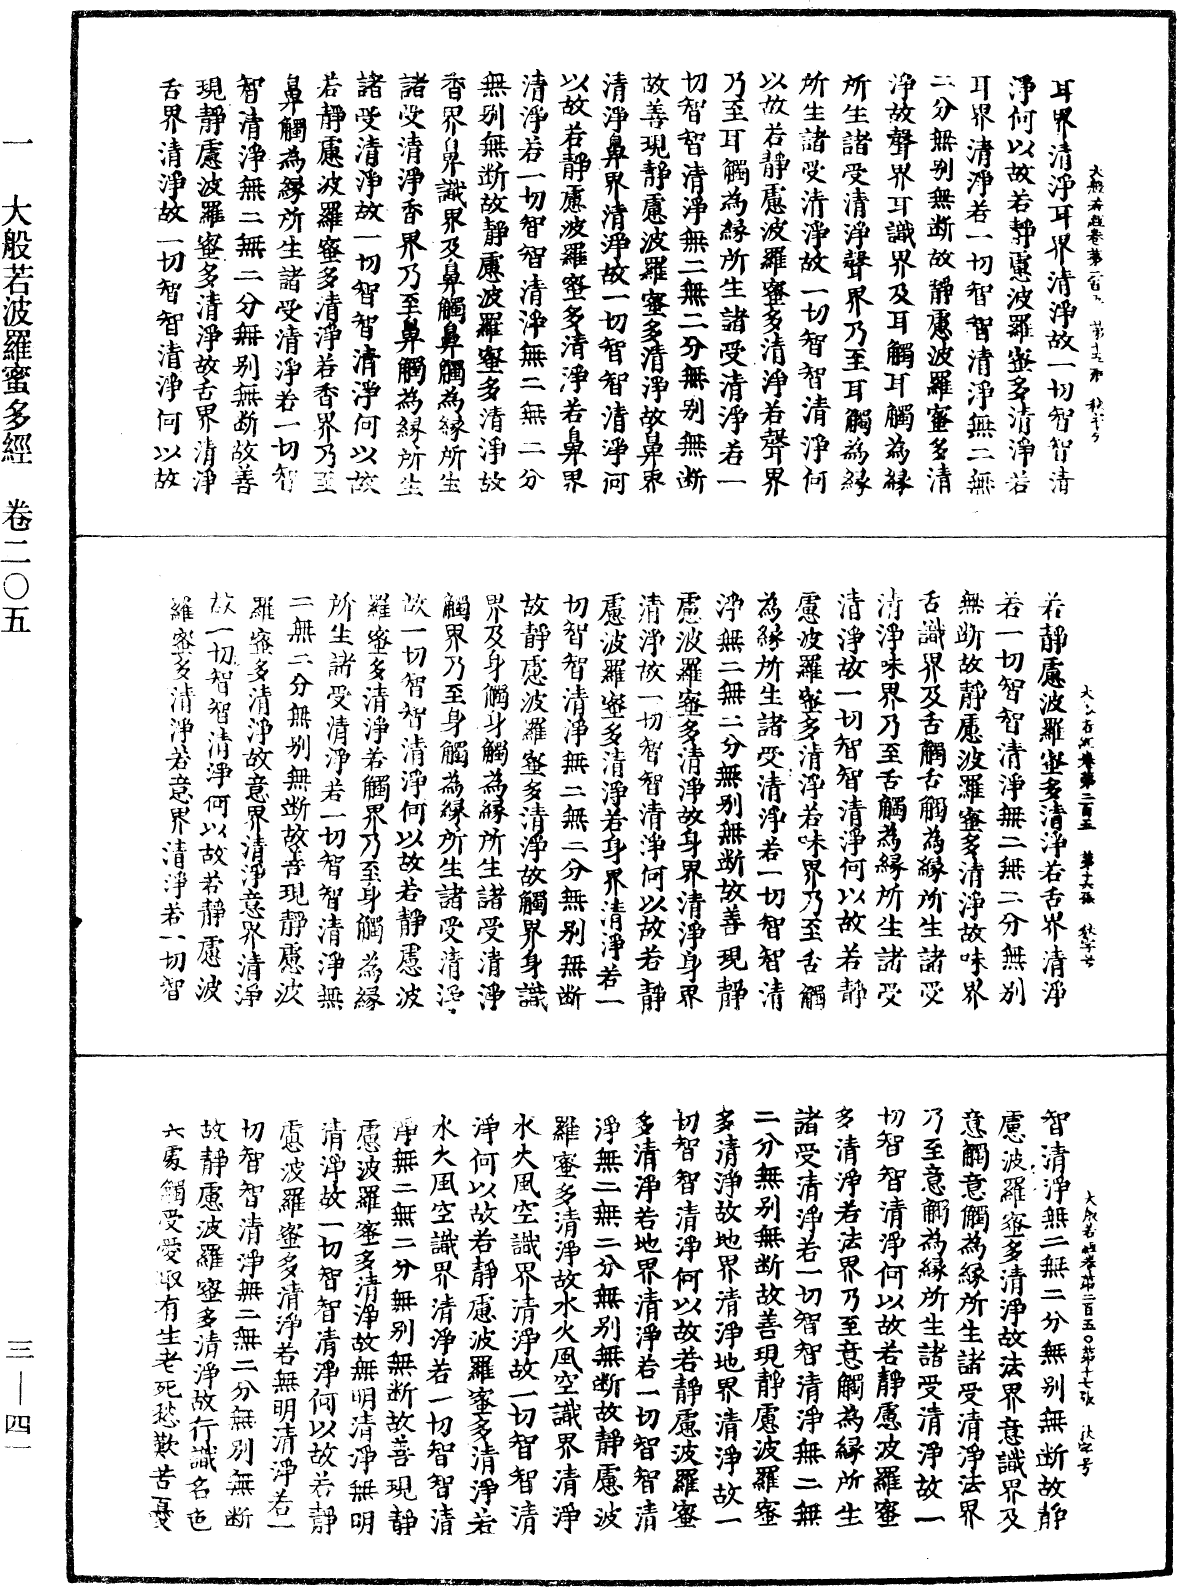 一 大般若波羅蜜多經 卷二〇五
三—四一
耳界清淨耳界清淨故一切智智清
淨何以故若靜慮波羅蜜多清淨若
耳界清淨若一切智智清淨無二無
二分無別無斷故靜慮波羅蜜多清
淨故聲界耳識界及耳觸耳觸為緣
所生諸受清淨聲界乃至耳觸為緣
所生諸受清淨故一切智智清淨何
以故若靜慮波羅蜜多清淨若聲界
乃至耳觸為緣所生諸受清淨若一
切智智清淨無二無二分無別無斷
故善現靜慮波羅蜜多清淨故鼻界
清淨鼻界清淨故一切智智清淨何
以故若靜慮波羅蜜多清淨若鼻界
清淨若一切智智清淨無二無二分
無別無斷故靜慮波羅蜜多清淨故
香界鼻識界及鼻觸鼻觸為緣所生
諸受清淨香界乃至鼻觸為緣所生
諸受清淨故一切智智清淨何以故
若靜慮波羅蜜多清淨若香界乃至
鼻觸為緣所生諸受清淨若一切智
智清淨無二無二分無別無斷故善
現靜慮波羅蜜多清淨故舌界清淨
舌界清淨故一切智智清淨何以故
若靜慮波羅蜜多清淨若舌界清淨
若一切智智清淨無二無二分無別
無斷故靜慮波羅蜜多清淨故味界
舌識界及舌觸舌觸為緣所生諸受
清淨味界乃至舌觸為緣所生諸受
清淨故一切智智清淨何以故若靜
慮波羅蜜多清淨若味界乃至舌觸
為緣所生諸受清淨若一切智智清
淨無二無二分無別無斷故善現靜
慮波羅蜜多清淨故身界清淨身界
清淨故一切智智清淨何以故若靜
慮波羅蜜多清淨若身界清淨若一
切智智清淨無二無二分無別無斷
故靜慮波羅蜜多清淨故觸界身識
界及身觸身觸為緣所生諸受清淨
觸界乃至身觸為緣所生諸受清淨
故一切智智清淨何以故若靜慮波
羅蜜多清淨若觸界乃至身觸為緣
所生諸受清淨若一切智智清淨無
二無二分無別無斷故善現靜慮波
羅蜜多清淨故意界清淨意界清淨
故一切智智清淨何以故若靜慮波
羅蜜多清淨若意界清淨若一切智
智清淨無二無二分無別無斷故靜
慮波羅蜜多清淨故法界意識界及
意觸意觸為緣所生諸受清淨法界
乃至意觸為緣所生諸受清淨故一
切智智清淨何以故若靜慮波羅蜜
多清淨若法界乃至意觸為緣所生
諸受清淨若一切智智清淨無二無
二分無別無斷故善現靜慮波羅蜜
多清淨故地界清淨地界清淨故一
切智智清淨何以故若靜慮波羅蜜
多清淨若地界清淨若一切智智清
淨無二無二分無別無斷故靜慮波
羅蜜多清淨故水火風空識界清淨
水火風空識界清淨故一切智智清
淨何以故若靜慮波羅蜜多清淨若
水火風空識界清淨若一切智智清
淨無二無二分無別無斷故善現靜
慮波羅蜜多清淨故無明清淨無明
清淨故一切智智清淨何以故若靜
慮波羅蜜多清淨若無明清淨若一
切智智清淨無二無二分無別無斷
故靜慮波羅蜜多清淨故行識名色
六處觸受愛取有生老死愁歎苦憂